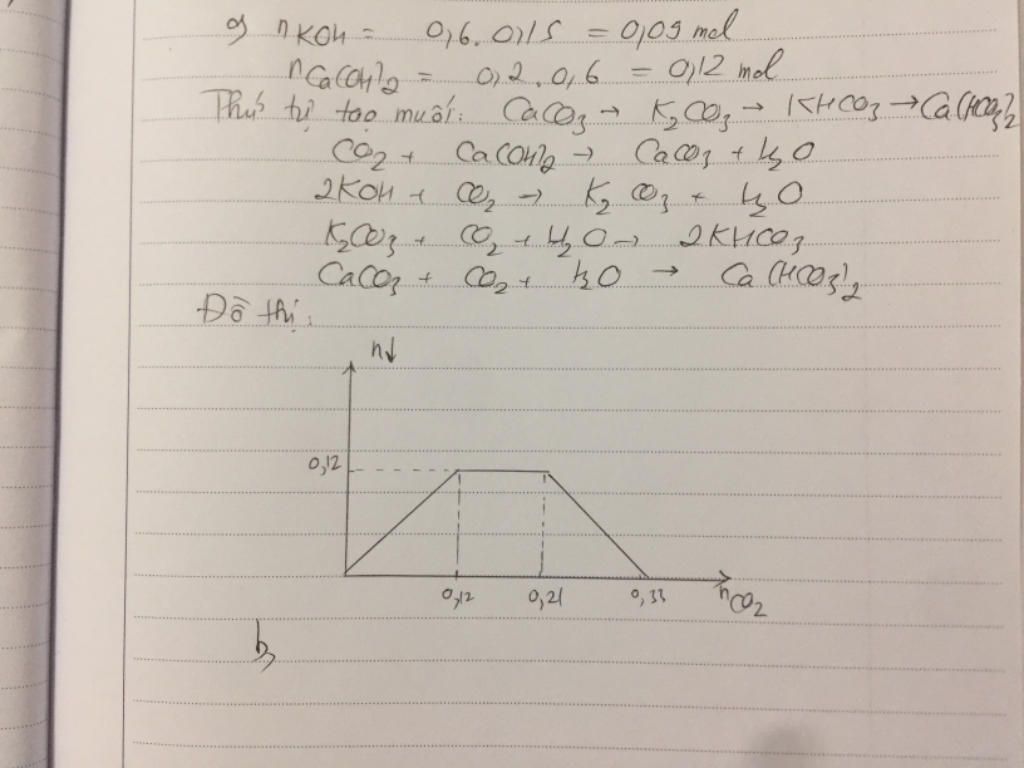 a, nKOH = 0,6. 0,15 = 0,09 mol
nCa(OH)2 = 0,2. 0,6 = 0,12 mol
Thứ tự tạo muối: CaCO3 → K2CO3 → KHCO3 → Ca(HCO3)2
CO2 + Ca(OH)2 → CaCO3 + H2O
2KOH + CO2 → K2CO3 + H2O
K2CO3 + CO2 + H2O → 2KHCO3
CaCO3 + CO2 + H2O → Ca(HCO3)2
Đồ thị:
n↓
0,12
0,12 0,21 0,33 nCO2
b,